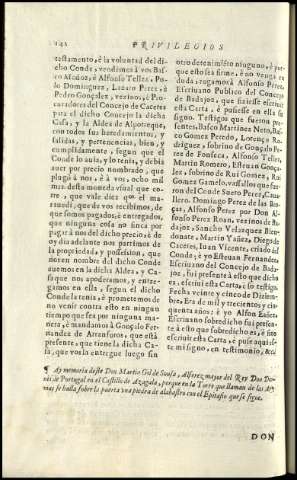 142
PRIVILEGIOS
testamento, è la voluntad del di-
cho Conde, vendemos à vos Bas-
co Afoñoz, è Alfonso Tellez, Po-
lo Dominguez, Lazaro Perez, è
Pedro Gonçalez, vezinos, è Pro-
curadores del Concejo de Caceres
para el dicho Concejo la dicha
Casa, y la Aldea de Algoreque,
con todos sus heredamientos, y
salidas, y pertenencias, bien, y
cumplidamente, segun que el
Conde lo auia, y lo tenia, y debia
auer por precio nombrado, que
plugò à nos, è à vos, ocho mil
mas desta moneda vsual que cor-
re, que vale diez el ma-
rauedi, que de vos recibimos, de
que somos pagados, è entregados,
que ninguna cosa no finca por
pagar à nos del dicho precio, è de
oy dia adelante nos partimos de
la propiedad, y posession, que
por nombre del dicho Conde
auemos en la dicha Aldea, y Ca-
sa que nos apoderamos, y entre-
gamos en ella, segun el dicho
Conde la tenia, è prometemos de
no venir contra esto en ningun
tiempo que sea por ninguna ma-
nera, è mandamos à Gonçalo Fer-
nandez de Arranforos, que està
presente, que tiene la dicha Ca-
sa, que vos la entregue luego sin
otro detenimiento ninguno, è por-
que esto sea firme, è no venga en
duda, rogamos à Alfonso
Escriuano Publico del Concejo
de Badajoz, que fiziesse escriuir
esta Carta, è pusiesse en ella su
signo. Testigos que fueron pre-
sentes, Basco Martinez Neto, Bas-
co Gomez Peredo, Lorenço Ro-
driguez, sobrino de Gonçalo Pe-
rez de Fonseca, Alfonso Tellez,
Martin Romero, Esteuan Gonça-
lez, sobrino de Rui Gomez, Rui
Gomez Gamelo, vassallos que fue-
ron del Conde Suero Perez, Caua-
llero. Domingo Perez de las
Alfonso Perez por Don Al-
fonso Perez Roan, vezinos de Ba-
dajoz, Sancho Velazquez Bien-
donare, Martin Yañez, Degado
Caceres, Juan Vicente, criado del
Conde; è yo Esteuan Fernandez
Escriuano del Concejo de Bada-
joz, fui presente à esto que dicho
es, è escriui esta Carta; è so testigo.
Fecha veinte y cinco de Diziem-
bre, Era de mil y trecientos y cin-
quenta años; è yo Alfon Eañez
Escriuano sobredicho fui presen-
te à esto que sobredicho es, è fize
escriuir esta Carta, è puse aqui mi
signo, en testimonio,
¶ Ay memoria deste Don Martin Gil de Sousa, Alferez mayor del Rey Don Do-
nis de Portugal en el Castillo de Azagala, porque en la Torre que llaman de las Ar-
mas se halla sobre la puerta vna piedra de alabastro con el Epitafio que se sigue.
DON